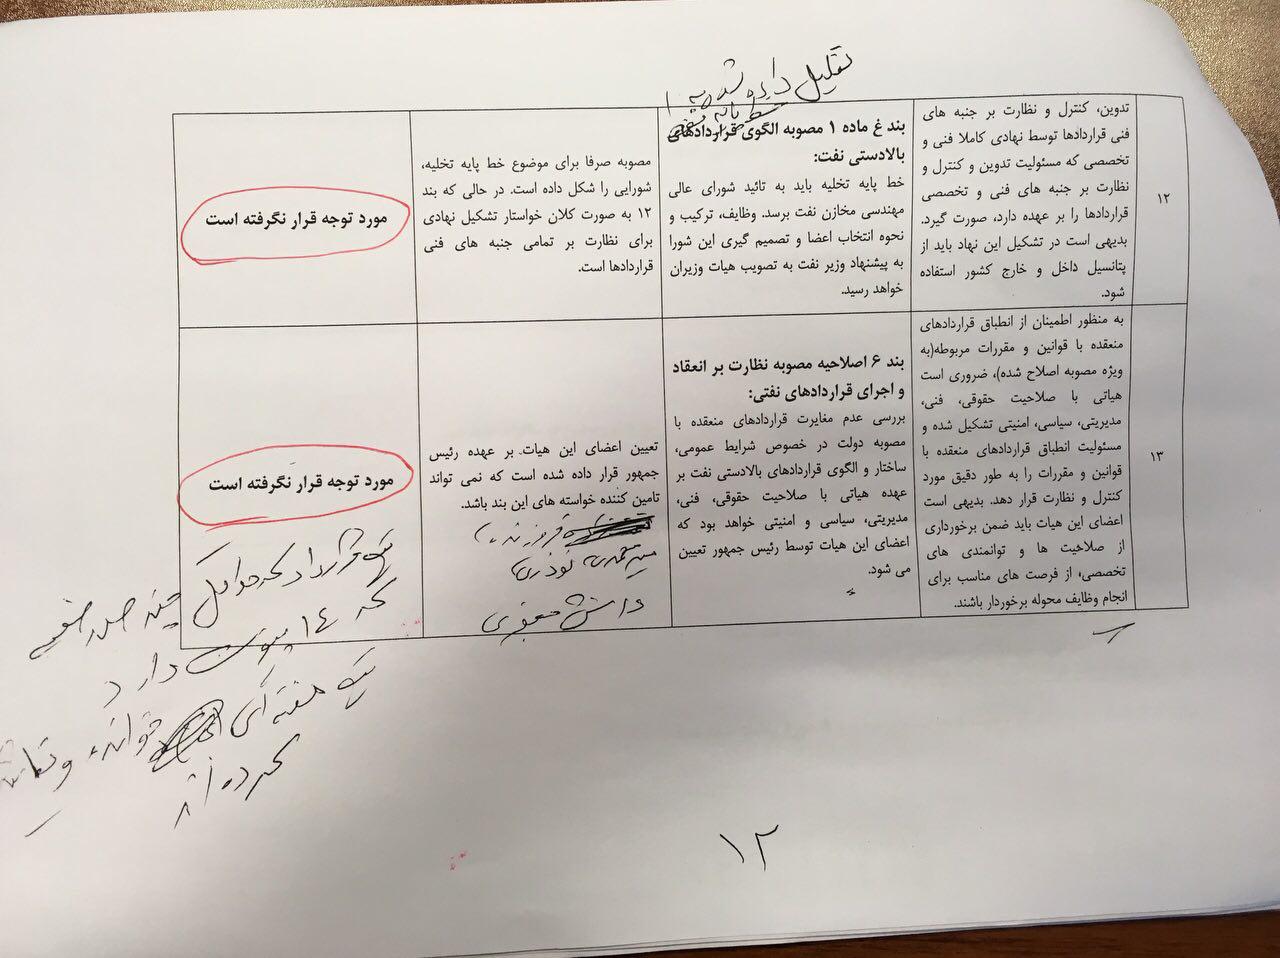 تشکیل
۱۲
تدوین، کنترل و نظارت بر جنبه های
فنی قراردادها توسط نهادی کاملا فنی و
تخصصی که مسئولیت تدوین و کنترل و
نظارت بر جنبه های فنی و تخصصی
قراردادها را بر عهده دارد، صورت گیرد.
بدیهی است در تشکیل این نهاد باید از
پتانسیل داخل و خارج کشور استفاده
شود.
بند غ ماده ۱ مصوبه الگوی قراردادهای
بالادستی نفت:
خط پایه تخلیه باید به تائید شورای عالی
مهندسی مخازن نفت برسد. وظایف، ترکیب و
نحوه انتخاب اعضا و تصمیم گیری این شورا
به پیشنهاد وزیر نفت به تصویب هیات وزیران
خواهد رسید.
مصوبه صرفا برای موضوع خط پایه تخلیه،
شورایی را شکل داده است. در حالی که بند
۱۲ به صورت کلان خواستار تشکیل نهادی
برای نظارت بر تمامی جنبه های فنی
قراردادها است.
مورد توجه قرار نگرفته است
۱۳
به منظور اطمینان از انطباق قراردادهای
منعقده با قوانین و مقررات مربوطه(به
ویژه مصوبه اصلاح شده)، ضروری است
هیاتی با صلاحیت حقوقی، فنی،
مدیریتی، سیاسی، امنیتی تشکیل شده و
مسئولیت انطباق قراردادهای منعقده با
قوانین و مقررات را به طور دقیق مورد
کنترل و نظارت قرار دهد. بدیهی است
اعضای این هیات باید ضمن برخورداری
از صلاحیت ها و توانمندی های
تخصصی، از فرصت های مناسب برای
انجام وظایف محوله برخوردار باشند.
بند ۶ اصلاحیه مصوبه نظارت بر انعقاد
و اجرای قراردادهای نفتی:
بررسی عدم مغایرت قراردادهای منعقده با
مصوبه دولت در خصوص شرایط عمومی،
ساختار و الگوی قراردادهای بالادستی نفت بر
عهده هیاتی با صلاحیت حقوقی، فنی،
مدیریتی، سیاسی و امنیتی خواهد بود که
اعضای این هیات توسط رئیس جمهور تعیین
می شود.
تعیین اعضای این هیات. بر عهده رئیس
جمهور قرار داده شده است که نمی تواند
تامین کننده خواسته های این بند باشد.
فروزنده،
میرمحمدی، نوذری،
دانش جعفری
مورد توجه قرار نگرفته است
قرارداد چند صد صفحه
که ۱۴ پیوست دارد
هفته ای خوانده و
کرده اند
۱۲